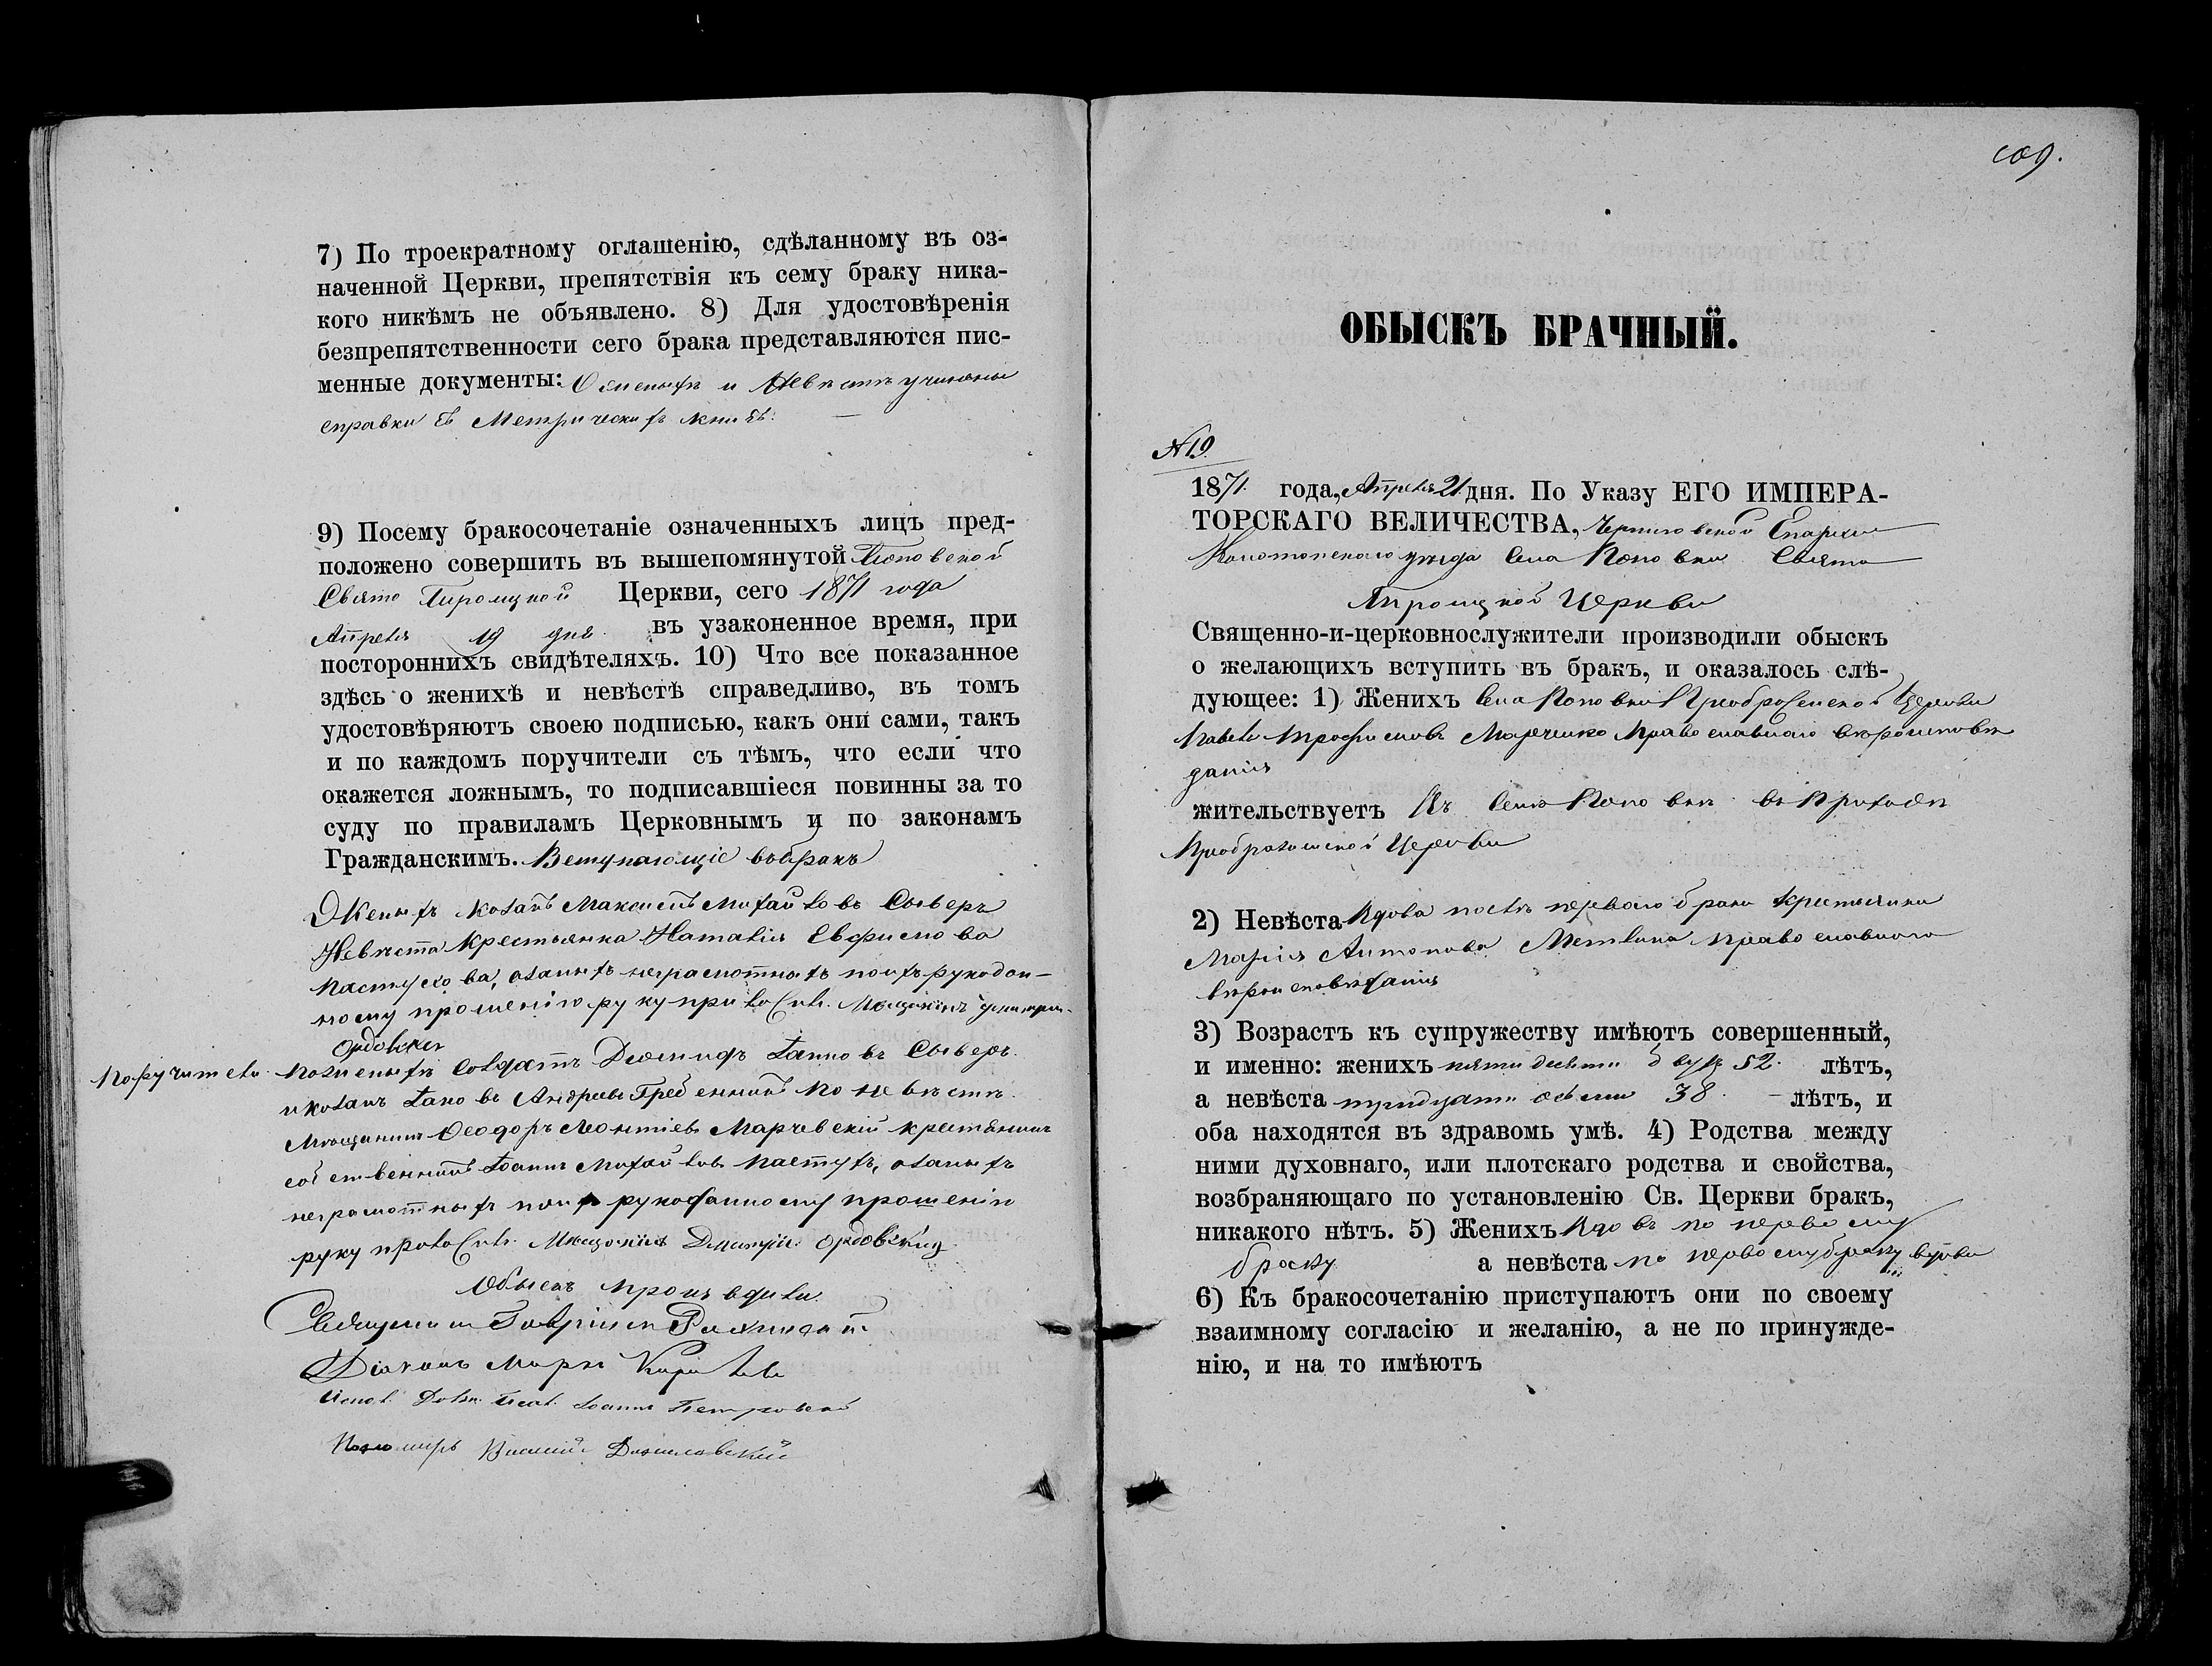 7) По троекратному оглашенію, сдѣланному въ оз-
наченной Церкви, препятствія къ сему браку ника-
кого никѣмъ не объявлено. 8) Для удостовѣренія
безпрепятственности сего брака представляются пис-
менные документы: О женихѣ и Невѣстѣ учинены
справки въ Метрическихъ книгѣ. —
9) Посему бракосочетаніе означенныхъ лицъ пред-
положено совершить въ вышепомянутой Поповской
Свято Троицкой Церкви, сего 1871 года
Апреля 19 дня. въ узаконенное время, при
постороннихъ свидѣтеляхъ. 10) Что все показанное
здѣсь о женихѣ и невѣстѣ справедливо, въ томъ
удостовѣряютъ своею подписью, какъ они сами, такъ
и по каждомъ поручители съ тѣмъ, что если что
окажется ложнымъ, то подписавшіеся повинны за то
суду по правиламъ Церковнымъ и по законамъ
Гражданскимъ. Вступающіе въ бракъ
Женихъ козакъ Максимъ Михайловъ Сыверъ
Невѣста Крестьянка Наталія Евфимова
Пастухова, а за нихъ неграмотныхъ по ихъ рукодан-
ному прошенію руку приложилъ. Мѣщанинъ
Поручители. По женихѣ Солдатъ Діомидъ Іанновъ Сыверъ.
и козакъ Іаковъ Андреевъ Гребенникъ По невѣстѣ
Мѣщанинъ Феодоръ Леонтіевъ Марчевскій крестьянинъ
собственникъ Іоаннъ Михайловъ Пастухъ, а за нихъ
неграмотныхъ по ихъ рукоданному прошенію
руку приложилъ. Мѣщанинъ Дмитрій Ордовскій
Обыскъ производили.
Священникъ Гавріилъ
Діаконъ Марко Кириловъ
Испол. Долж. Псал. Іоаннъ Петровскій
Пономарь Василій Даниловскій
109.
ОБЫСКЪ БРАЧНЫЙ.
N 19.
1871. года, Апреля 21 дня. По Указу ЕГО ИМПЕРА-
ТОРСКАГО ВЕЛИЧЕСТВА, Черниговской Епархіи
Конотопскаго уѣзда Села Поповки Свято
Троицкой Церкви
Священно-и-церковнослужители производили обыскъ
о желающихъ вступить въ бракъ, и оказалось слѣ-
дующее: 1) Женихъ Села Поповки Преображенской Церкви
Павелъ Трофимовъ Марченко Православнаго вѣроисповѣ
данія
жительствуетъ Въ Селѣ Поповкѣ въ Приходѣ
Преображенской Церкви
2) Невѣста Вдова послѣ перваго брака Крестьянка
Марія Антонова Метлина православнаго
вѣроисповѣданія
3) Возрастъ къ супружеству имѣютъ совершенный,
и именно: женихъ пятидесяти двухъ 52. лѣтъ,
а невѣста тридцати осьми 38. — лѣтъ, и
оба находятся въ здравомъ умѣ. 4) Родства между
ними духовнаго, или плотскаго родства и свойства,
возбраняющаго по установленію Св. Церкви бракъ,
никакого нѣтъ. 5) Женихъ Вдовъ по первому
браку. а невѣста по первому браку вдова
6) Къ бракосочетанію приступаютъ они по своему
взаимному согласію и желанію, а не по принужде-
нію, и на то имѣютъ